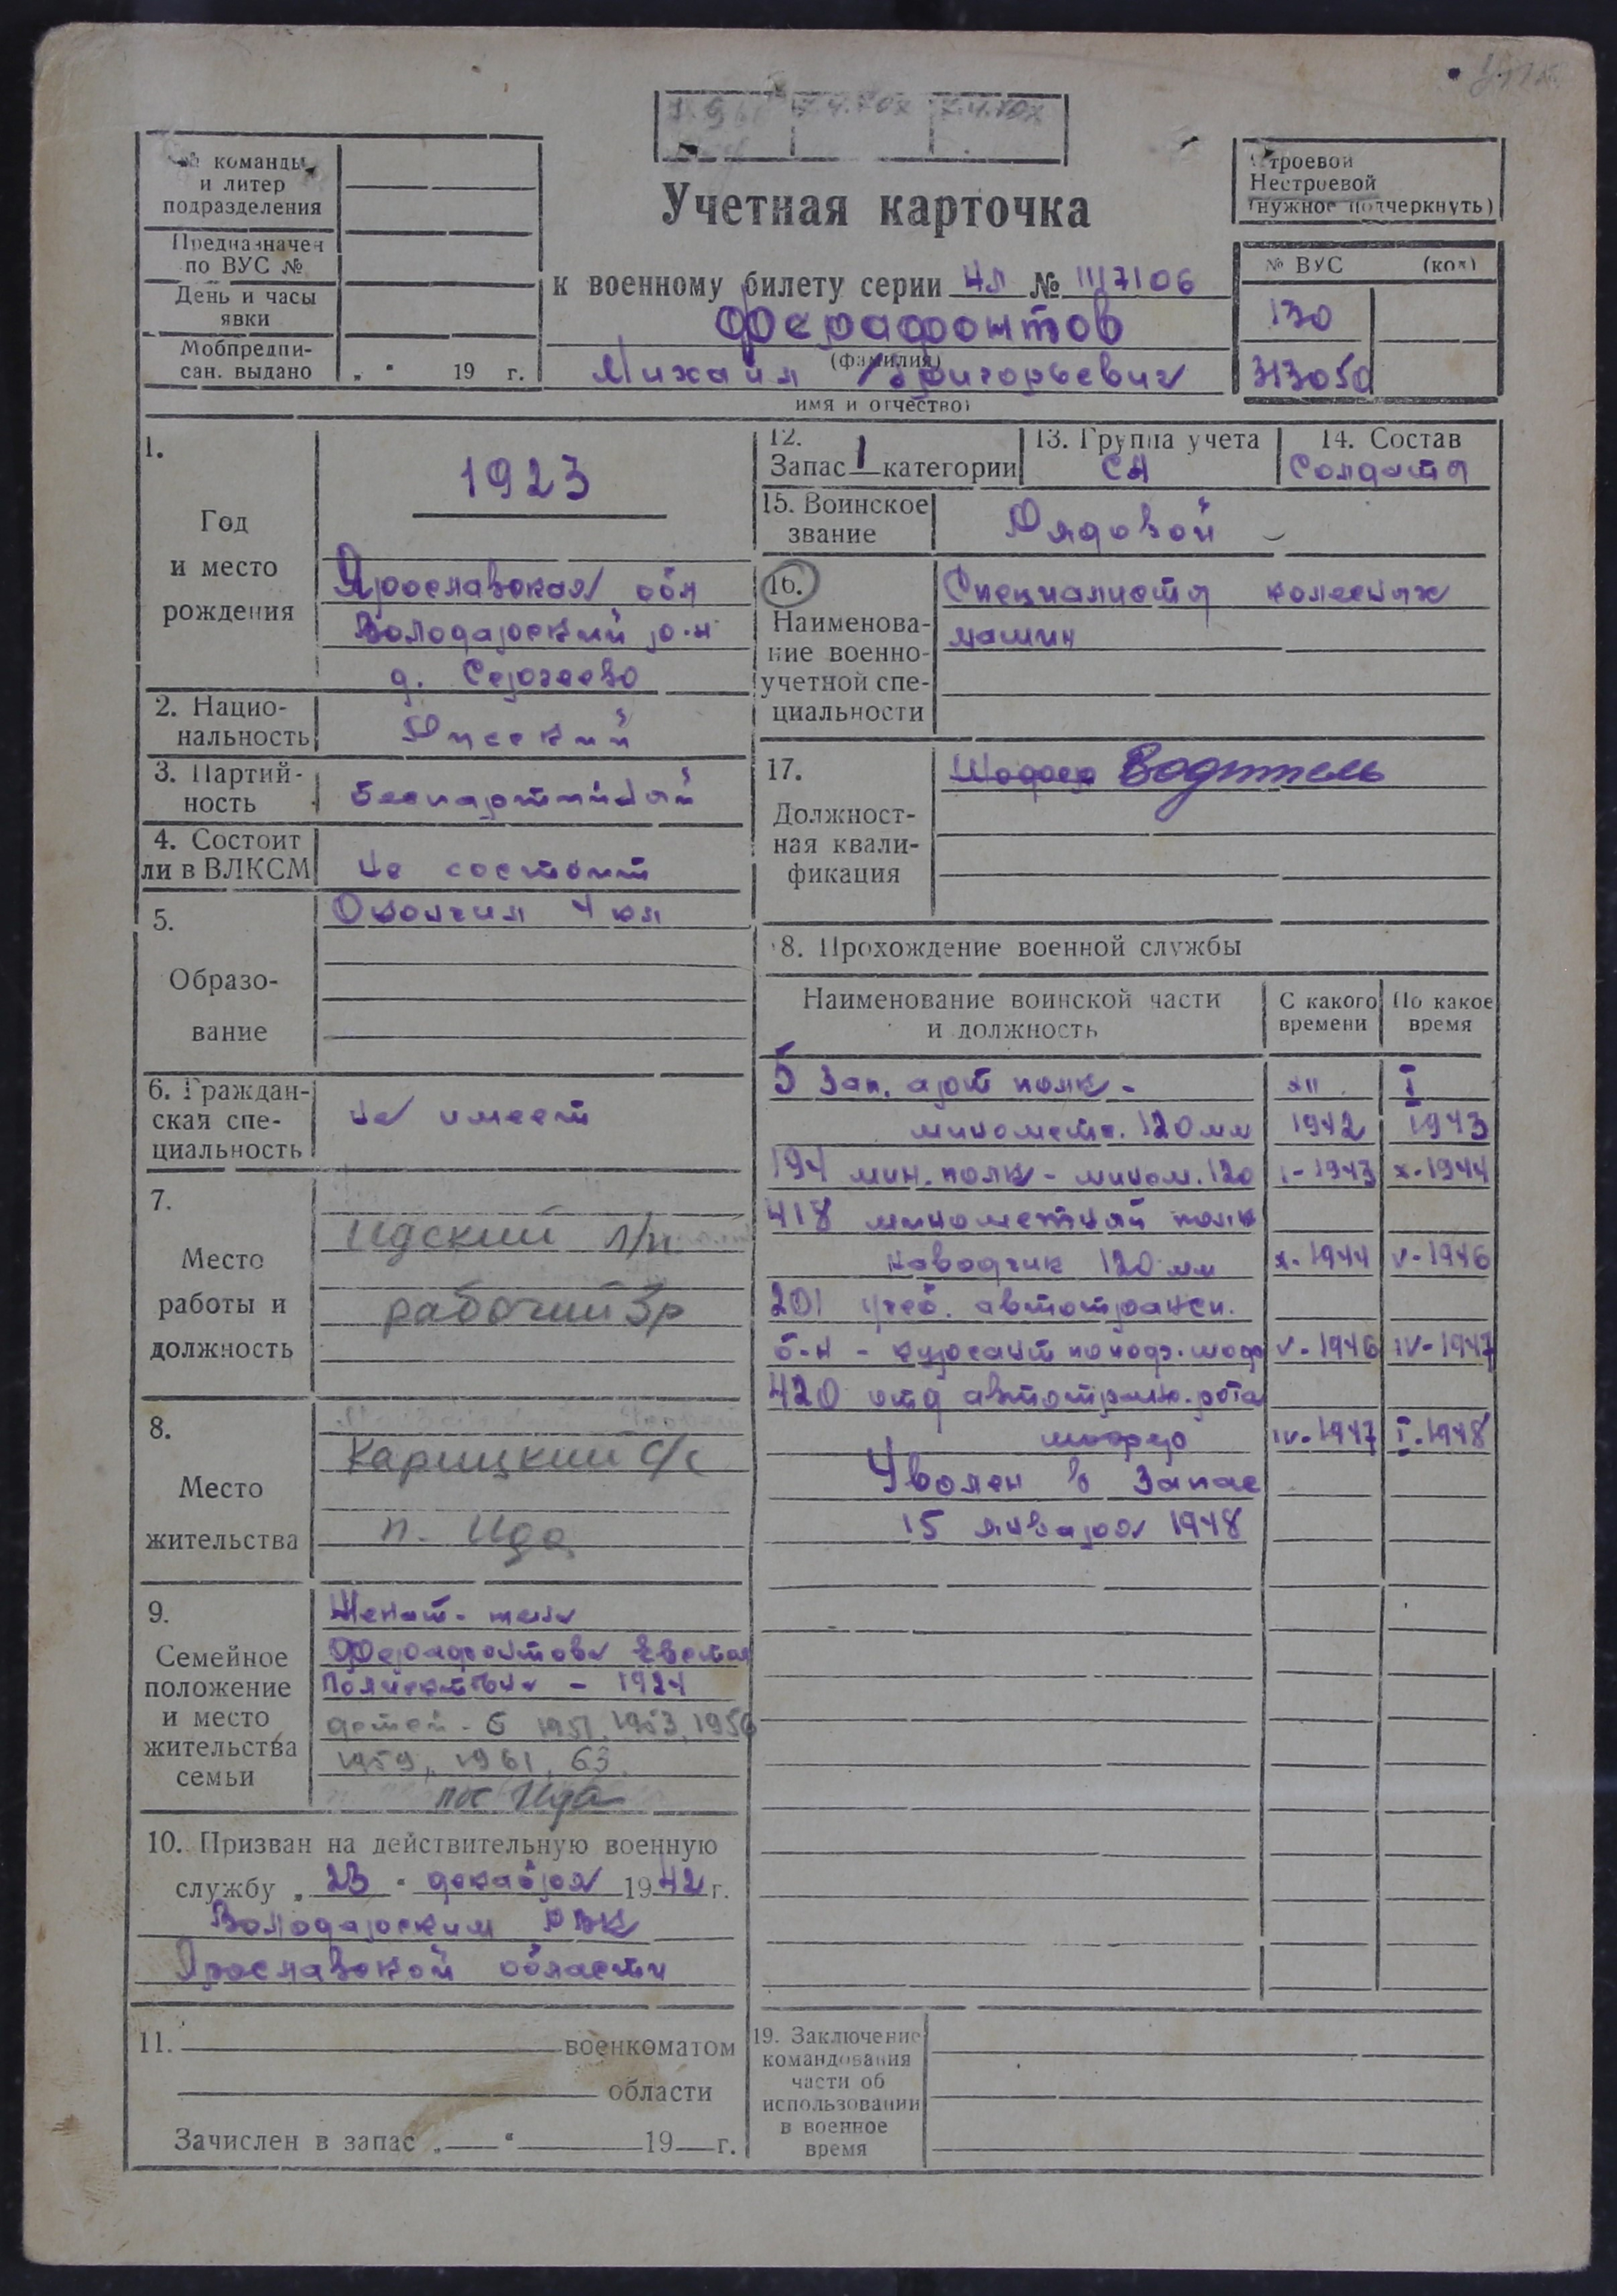 № команды
и литер
подразделения
Предназначен
по ВУС №
День и часы
явки
Мобпредпи-
сан. выдано „ “ 19 г.
Учетная карточка
к военному билету серии ЧЛ № 1117106
Ферафонтов
(фамилия)
Михаил Григорьевич
имя и отчество)
Строевой
Нестроевой
(нужное подчеркнуть)
№ ВУС (код)
130
313050
1.
Год
и место
рождения
1923
Ярославская обл
Володарский р-н
д. Сергеево
2. Нацио-
нальность Русский
3. Партий-
ность беспартийный
4. Состоит
ли в ВЛКСМ не состоит
5.
Образо-
вание
Окончил 4 кл
6. Граждан-
ская спе-
циальность
не имеет
7.
Место
работы и
должность
Идский л/п
рабочий 3р
8.
Место
жительства
Карицкий с/с
п. Ида
9.
Семейное
положение
и место
жительства
семьи
Женат - жена
Ферафонтова
- 1924
детей - 6 1951, 1953, 1956
1959, 1961, 63.
пос Ида
10. Призван на действительную военную
службу „ 23 “ декабря 1942 г.
Володарским РВК
Ярославской области
11. военкоматом
области
Зачислен в запас „ “ 19 г.
12.
Запас 1 категории
13. Группа учета
СА
14. Состав
Солдаты
15. Воинское
звание
Рядовой
16.
Наименова-
ние военно-
учетной спе-
циальности
Специалисты колесных
машин
17.
Должност-
ная квали-
фикация
Шофер Водитель
18. Прохождение военной службы
Наименование воинской части
и должность
С какого
времени
По какое
время
5 Зап. арт полк - XII I
минометч. 120 мм 1942 1943
194 мин. полк - мином. 120 I-1943 X-1944
418 минометный полк
наводчик 120 мм X-1944 V-1946
201 учеб. автотрансп.
б-н - курсант по подг. шоф V-1946 IV-1947
420 отд автотранс. рота
шофер IV-1947 I-1948
Уволен в Запас
15 января 1948
19. Заключение
командования
части об
использовании
в военное
время